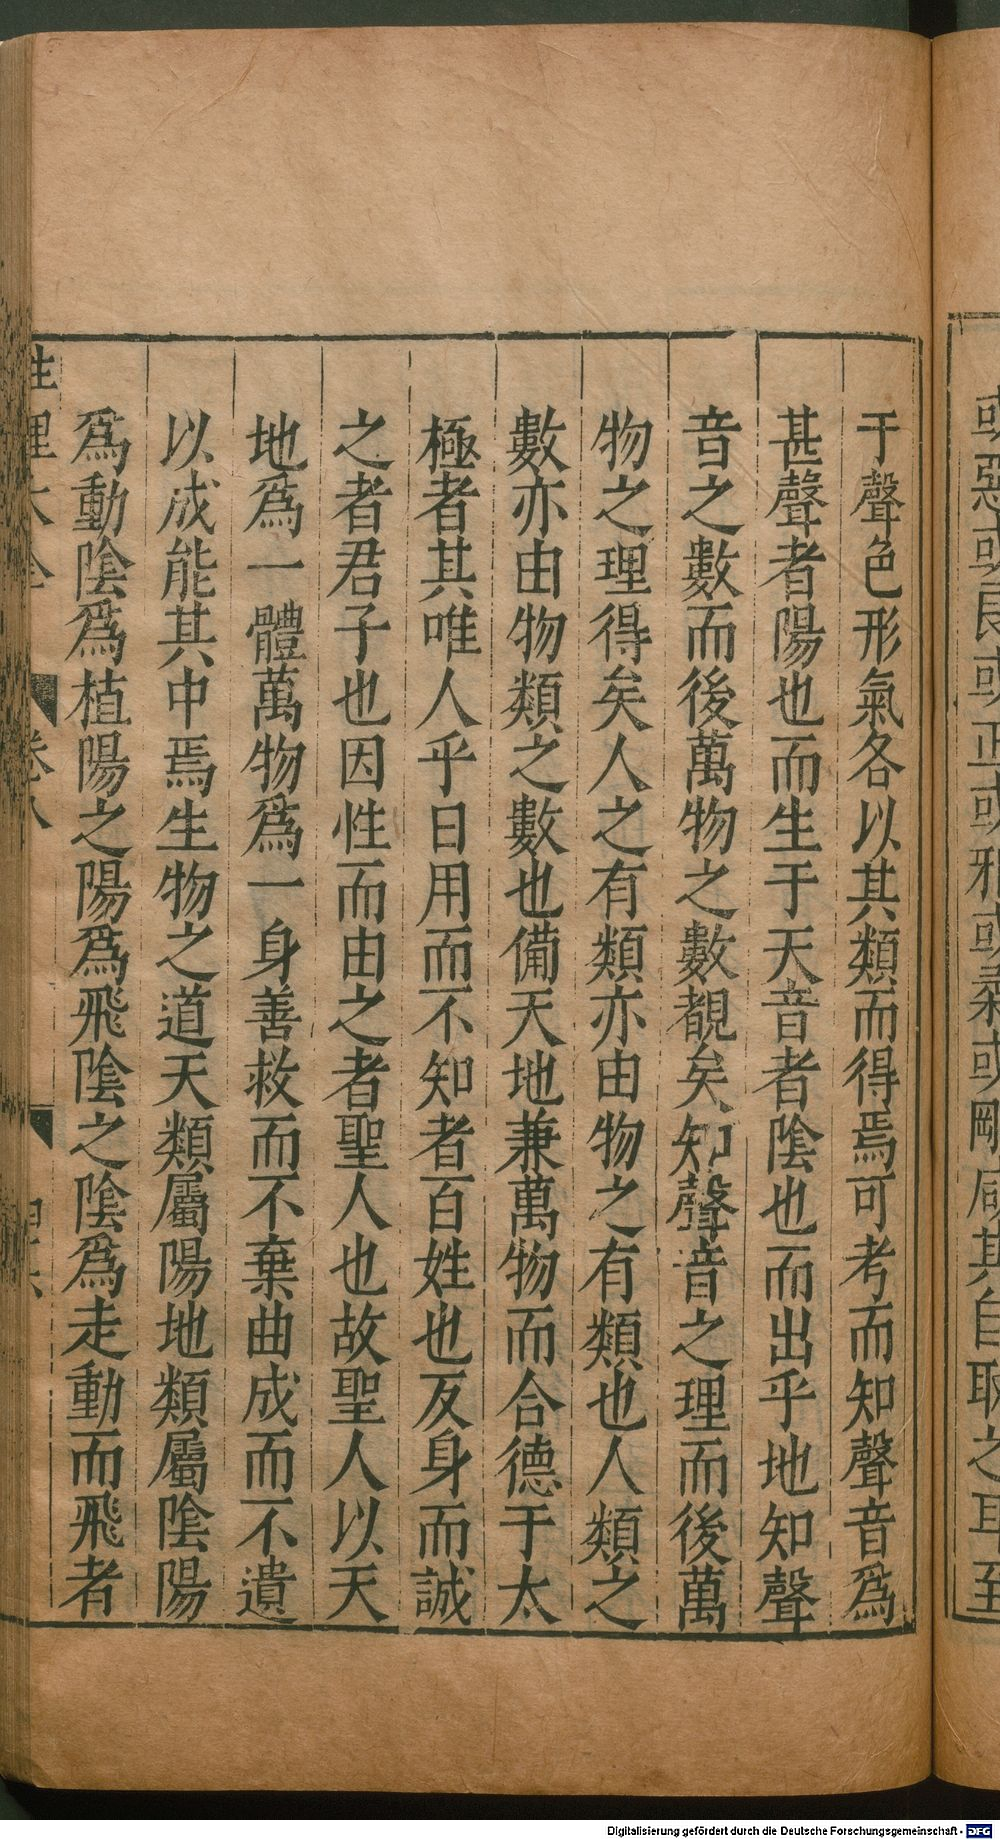 于聲色形氣各以其類而得焉可考而知聲音爲
甚聲者陽也而生于天音者陰也而出乎地知聲
音之數而後萬物之數覩矣知聲音之理而後萬
物之理得矣人之有類亦由物之有類也人類之
數亦由物類之數也備天地兼萬物而合德于太
極者其唯人乎日用而不知者百姓也反身而誠
之者君子也因性而由之者聖人也故聖人以天
地爲一體萬物爲一身善救而不棄曲成而不遺
以成能其中焉生物之道天類屬陽地類屬陰陽
爲動陰爲植陽之陽爲飛陰之陰爲走動而飛者
性理大全 卷八
Digitalisierung gefördert durch die Deutsche Forschungsgemeinschaft - DFG